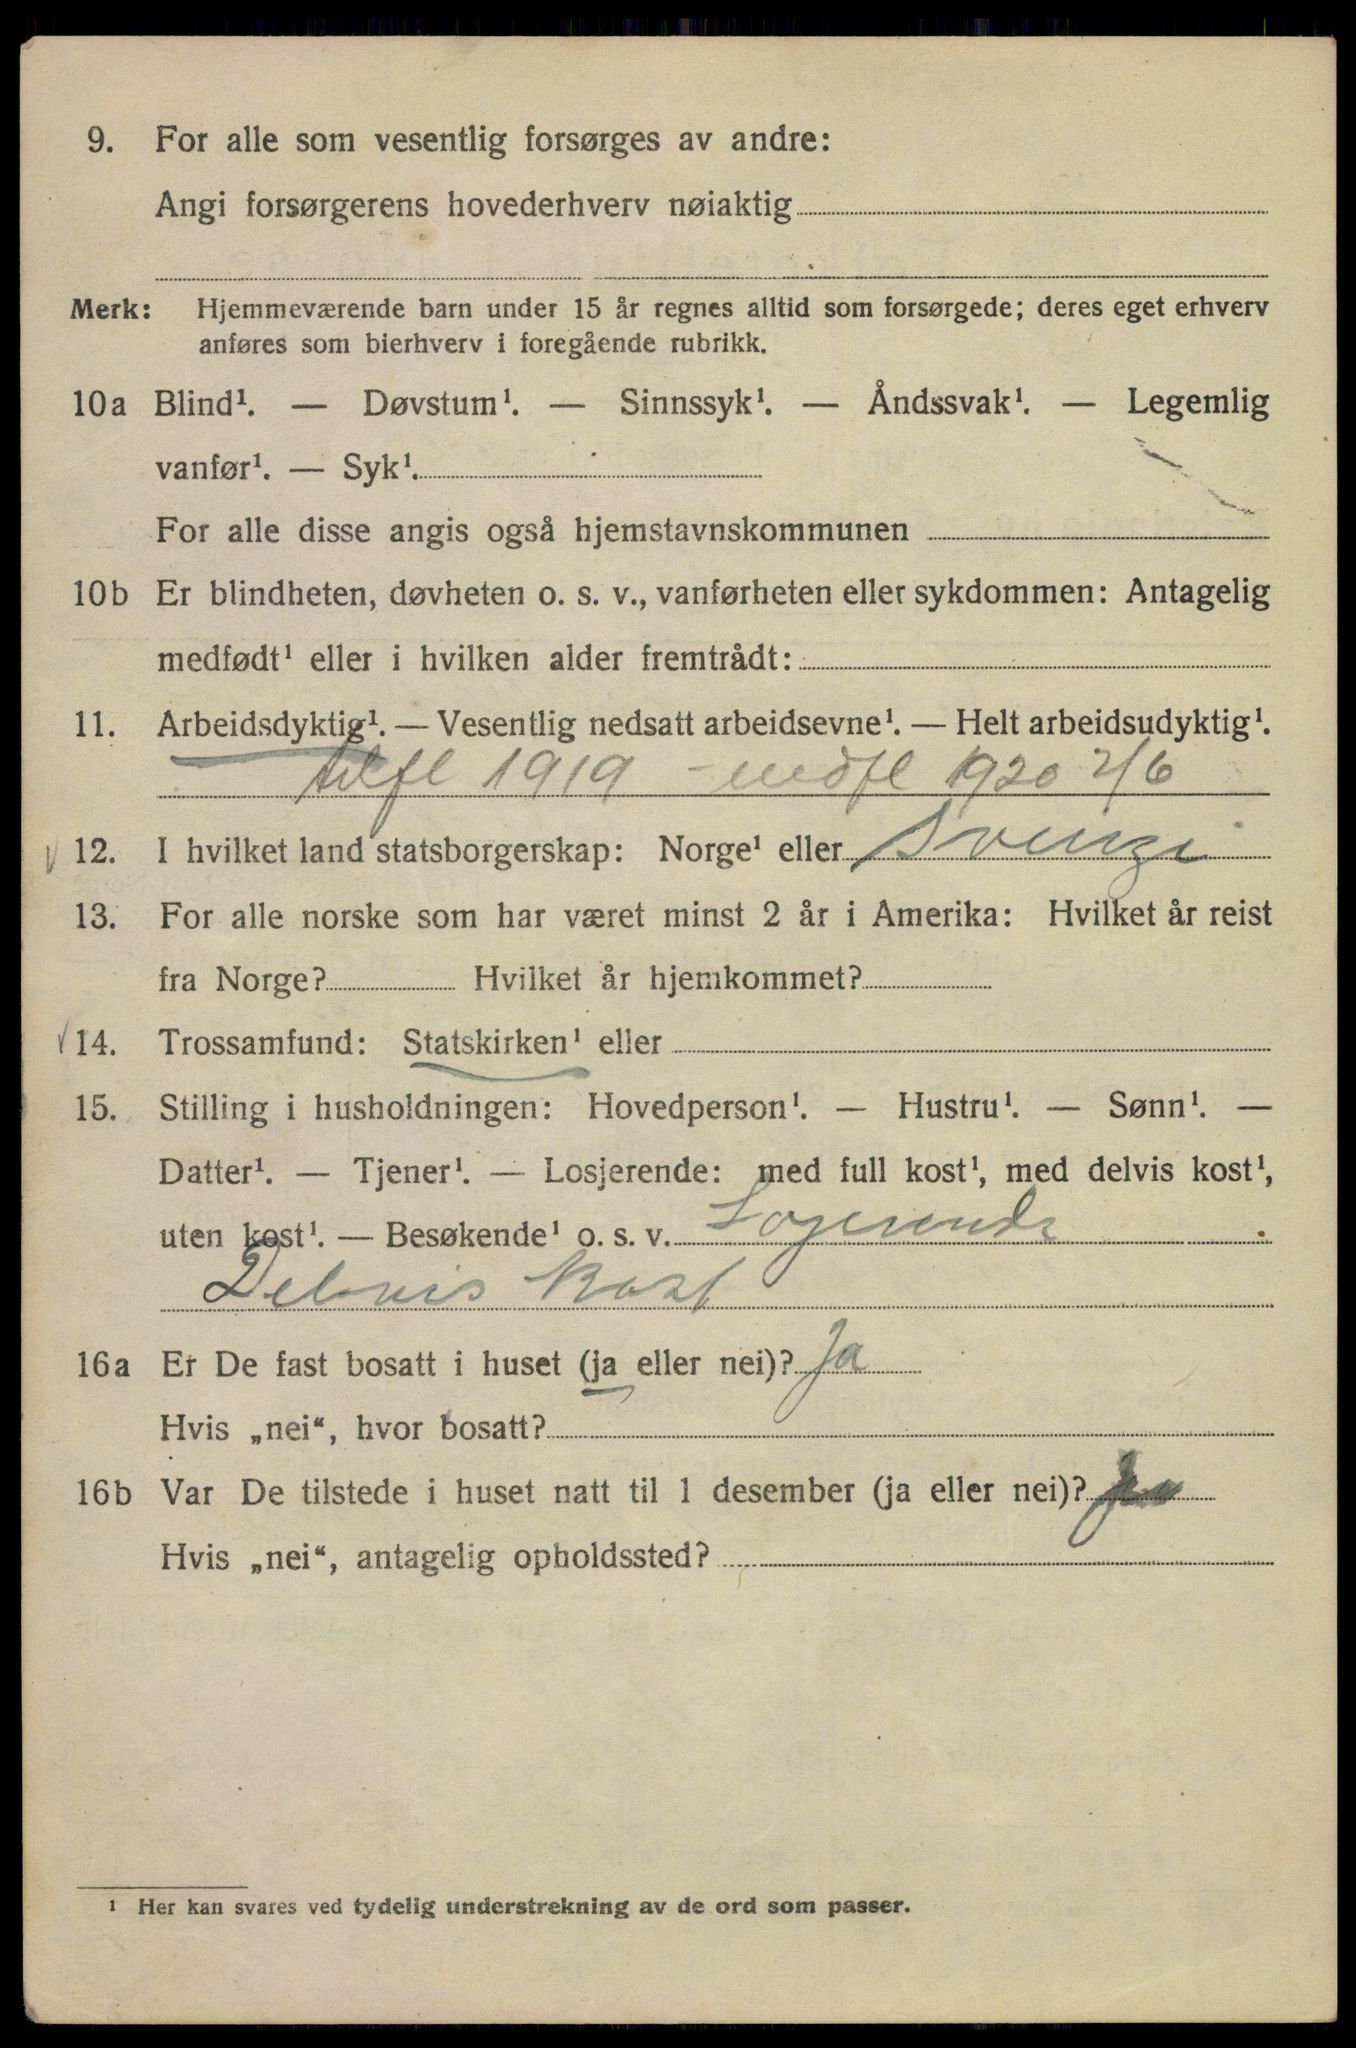 9. For alle som vesentlig forsørges av andre:
Angi forsørgerens hovederhverv nøiaktig
Merk: Hjemmeværende barn under 15 år regnes alltid som forsørgede; deres eget erhverv
anføres som bierhverv i foregående rubrikk.
10a Blind¹. — Døvstum¹. — Sinnssyk¹. — Åndssvak¹. — Legemlig
vanfør¹. — Syk¹.
For alle disse angis også hjemstavnskommunen
10b Er blindheten, døvheten o. s. v., vanførheten eller sykdommen: Antagelig
medfødt¹ eller i hvilken alder fremtrådt:
11. Arbeidsdyktig¹. — Vesentlig nedsatt arbeidsevne¹. — Helt arbeidsudyktig¹.
tilfl 1919 – indfl 1920 2/6
12. I hvilket land statsborgerskap: Norge¹ eller
13. For alle norske som har været minst 2 år i Amerika: Hvilket år reist
fra Norge? Hvilket år hjemkommet?
14. Trossamfund: Statskirken¹ eller
15. Stilling i husholdningen: Hovedperson¹. — Hustru¹. — Sønn¹. —
Datter¹. — Tjener¹. — Losjerende: med full kost¹, med delvis kost¹,
uten kost¹. — Besøkende¹ o. s. v. Logerende
Delvis kost
16a Er De fast bosatt i huset (ja eller nei)? Ja
Hvis „nei“, hvor bosatt?
16b Var De tilstede i huset natt til 1 desember (ja eller nei)? Ja
Hvis „nei“, antagelig opholdssted?
¹ Her kan svares ved tydelig understrekning av de ord som passer.